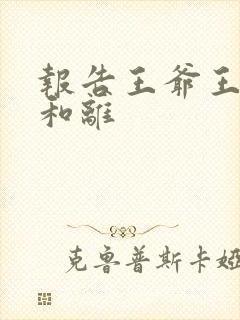 報告王爺王
和離
克魯普斯卡婭